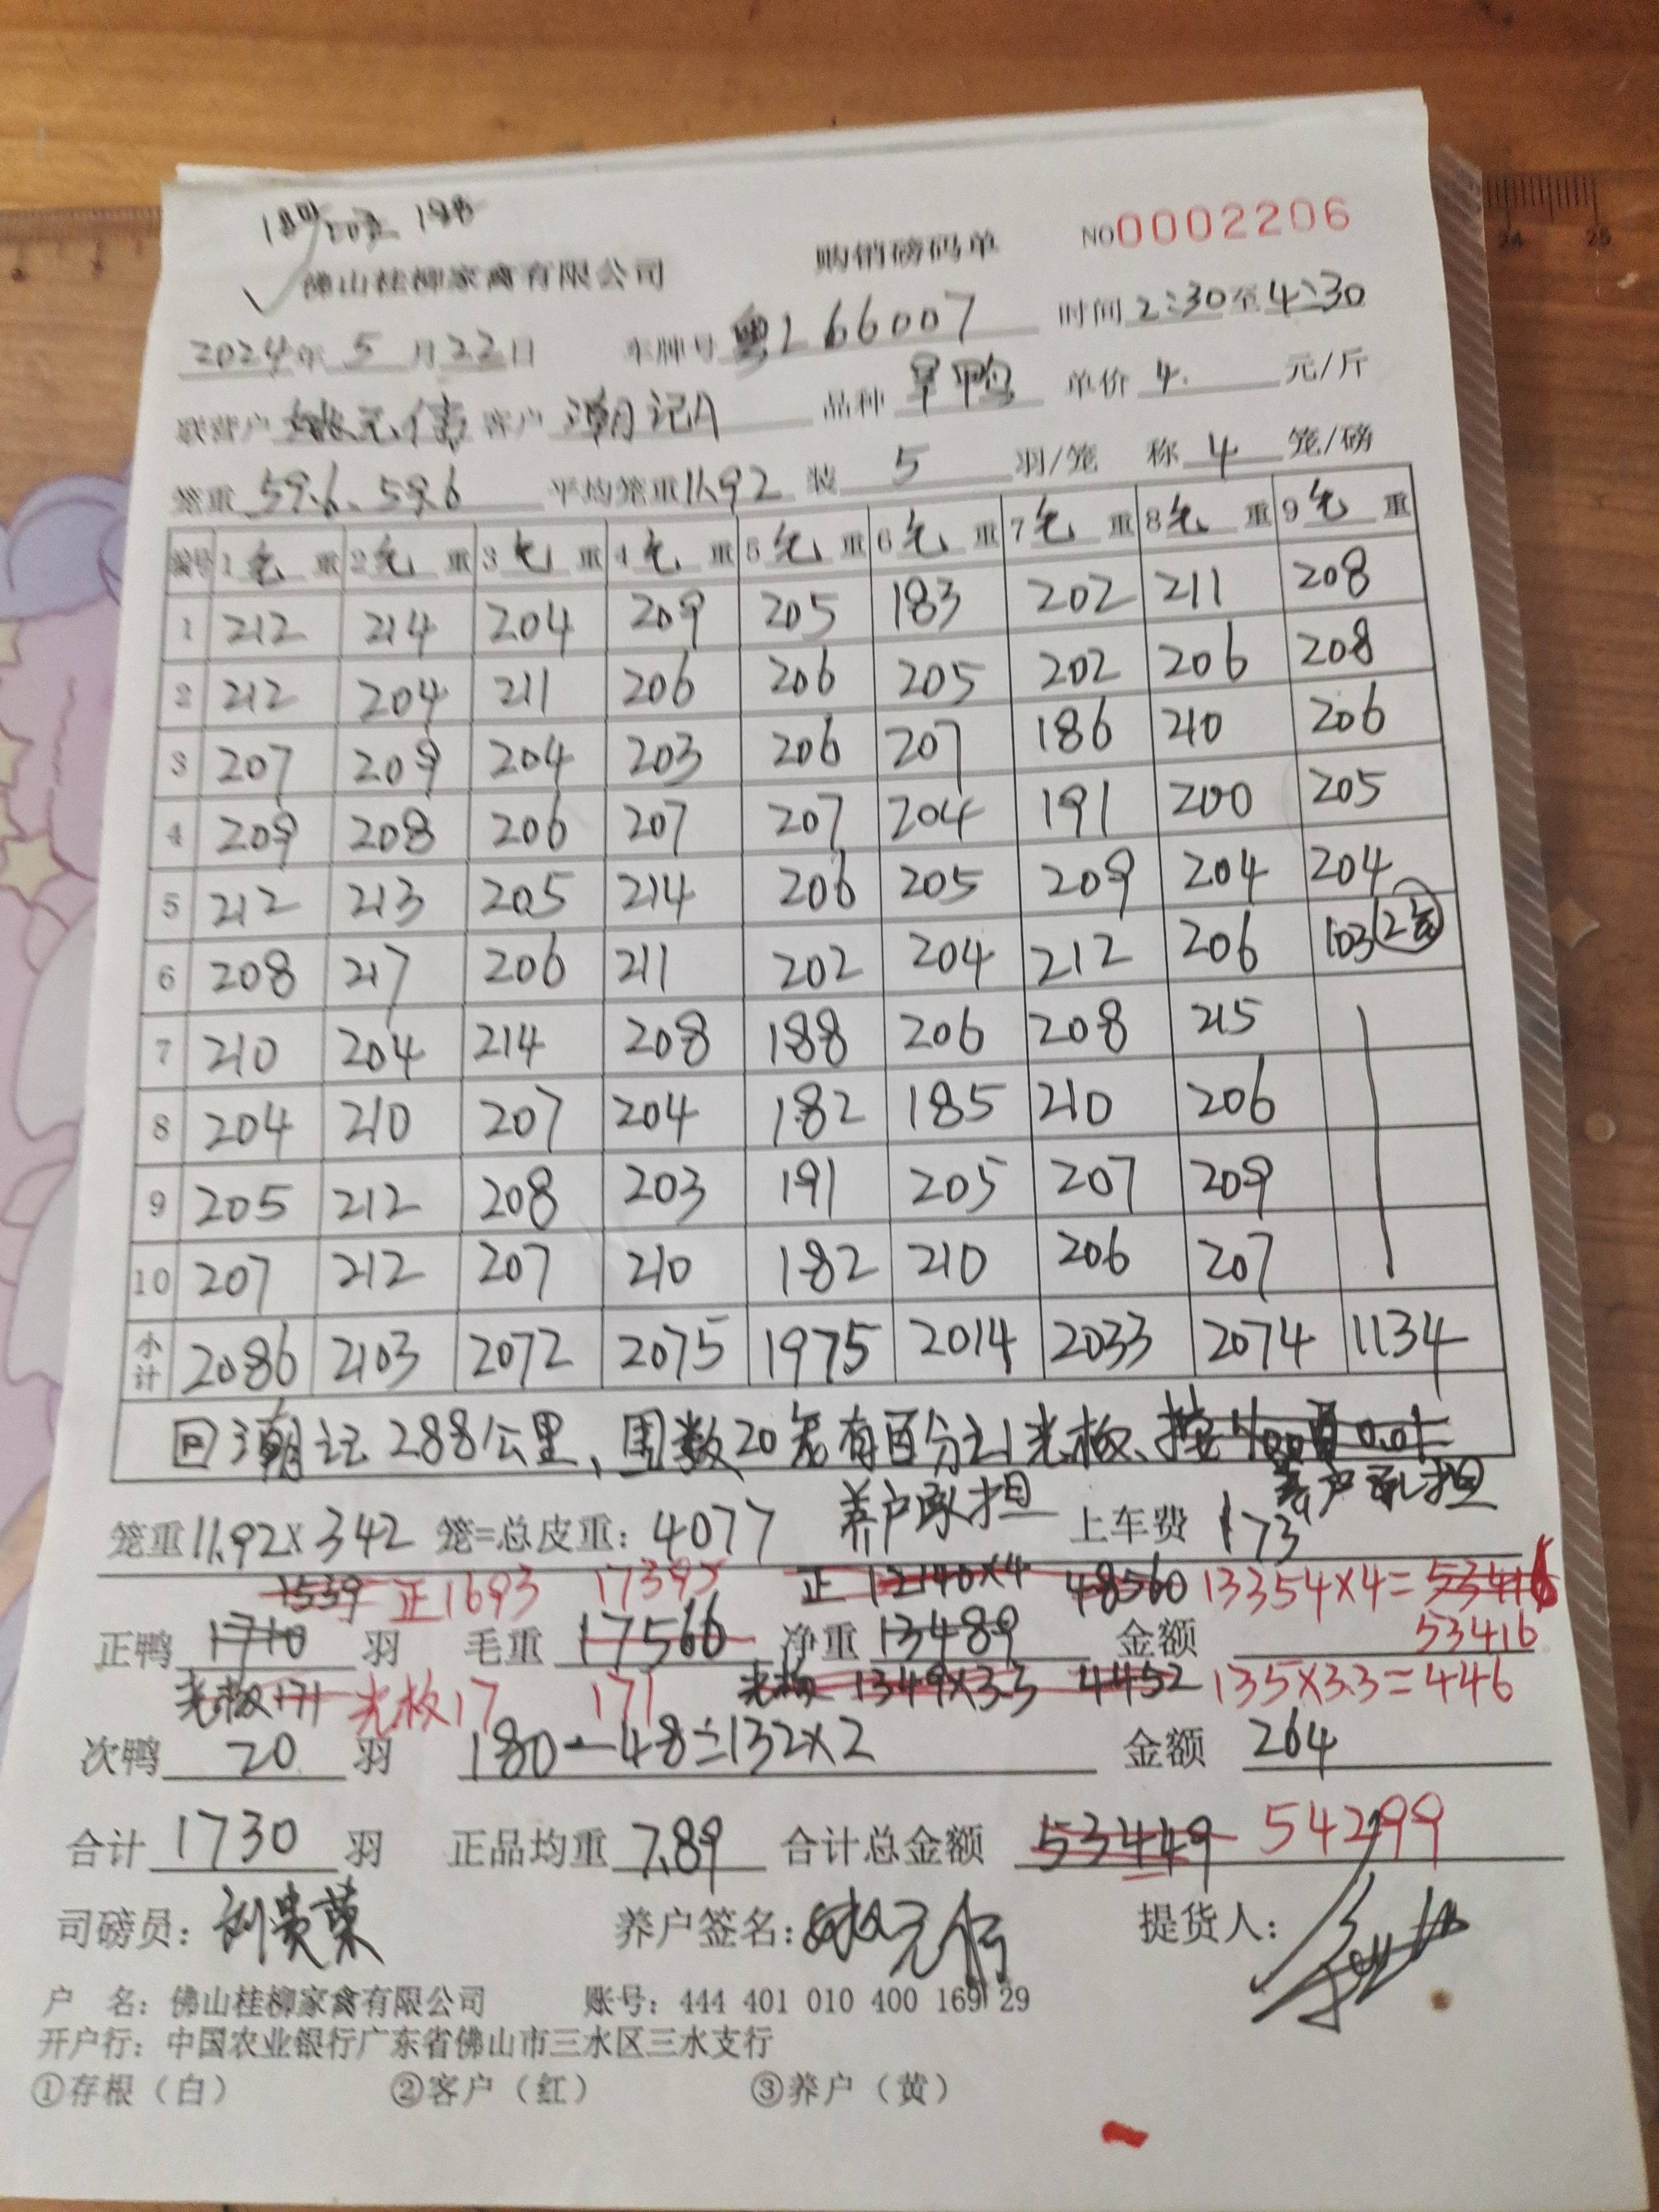 佛山桂柳家禽有限公司 购销磅码单 NO0002206
2024年 5月22日 车牌号 粤L66007 时间 2:30至4:30
联营户 姚元伟 客户 潮记A 品种 旱鸭 单价 4. 元/斤
笼重 59.6、59.6 平均笼重11.92 装 5 羽/笼 称 4 笼/磅
编号 1毛重 2毛重 3毛重 4毛重 5毛重 6毛重 7毛重 8毛重 9毛重
1 212 214 204 209 205 183 202 211 208
2 212 204 211 206 206 205 202 206 208
3 207 209 204 203 206 207 186 210 206
4 209 208 206 207 207 204 191 200 205
5 212 213 205 214 206 205 209 204 204
6 208 217 206 211 202 204 212 206 103(2笼)
7 210 204 214 208 188 206 208 215
8 204 210 207 204 182 185 210 206
9 205 212 208 203 191 205 207 209
10 207 212 207 210 182 210 206 207
小计 2086 2103 2072 2075 1975 2014 2033 2074 1134
回潮记288公里,围数20笼有百分之1光板、
养户承担 养户承担
笼重11.92×342 笼=总皮重:4077 上车费 173
1539 正1693 17395 正 12140×4 48560 13354×4=53416
正鸭 1710 羽 毛重 17566 净重 13489 金额 53416
光板171 光板17 171 光板 1349×3.3 4452 135×3.3=446
次鸭 20 羽 180-48=132×2 金额 264
合计 1730 羽 正品均重 7.89 合计总金额 53449 54299
司磅员:刘贵荣 养户签名:姚元伟 提货人:
户 名:佛山桂柳家禽有限公司 账号:444 401 010 400 169 29
开户行:中国农业银行广东省佛山市三水区三水支行
①存根(白) ②客户(红) ③养户(黄)